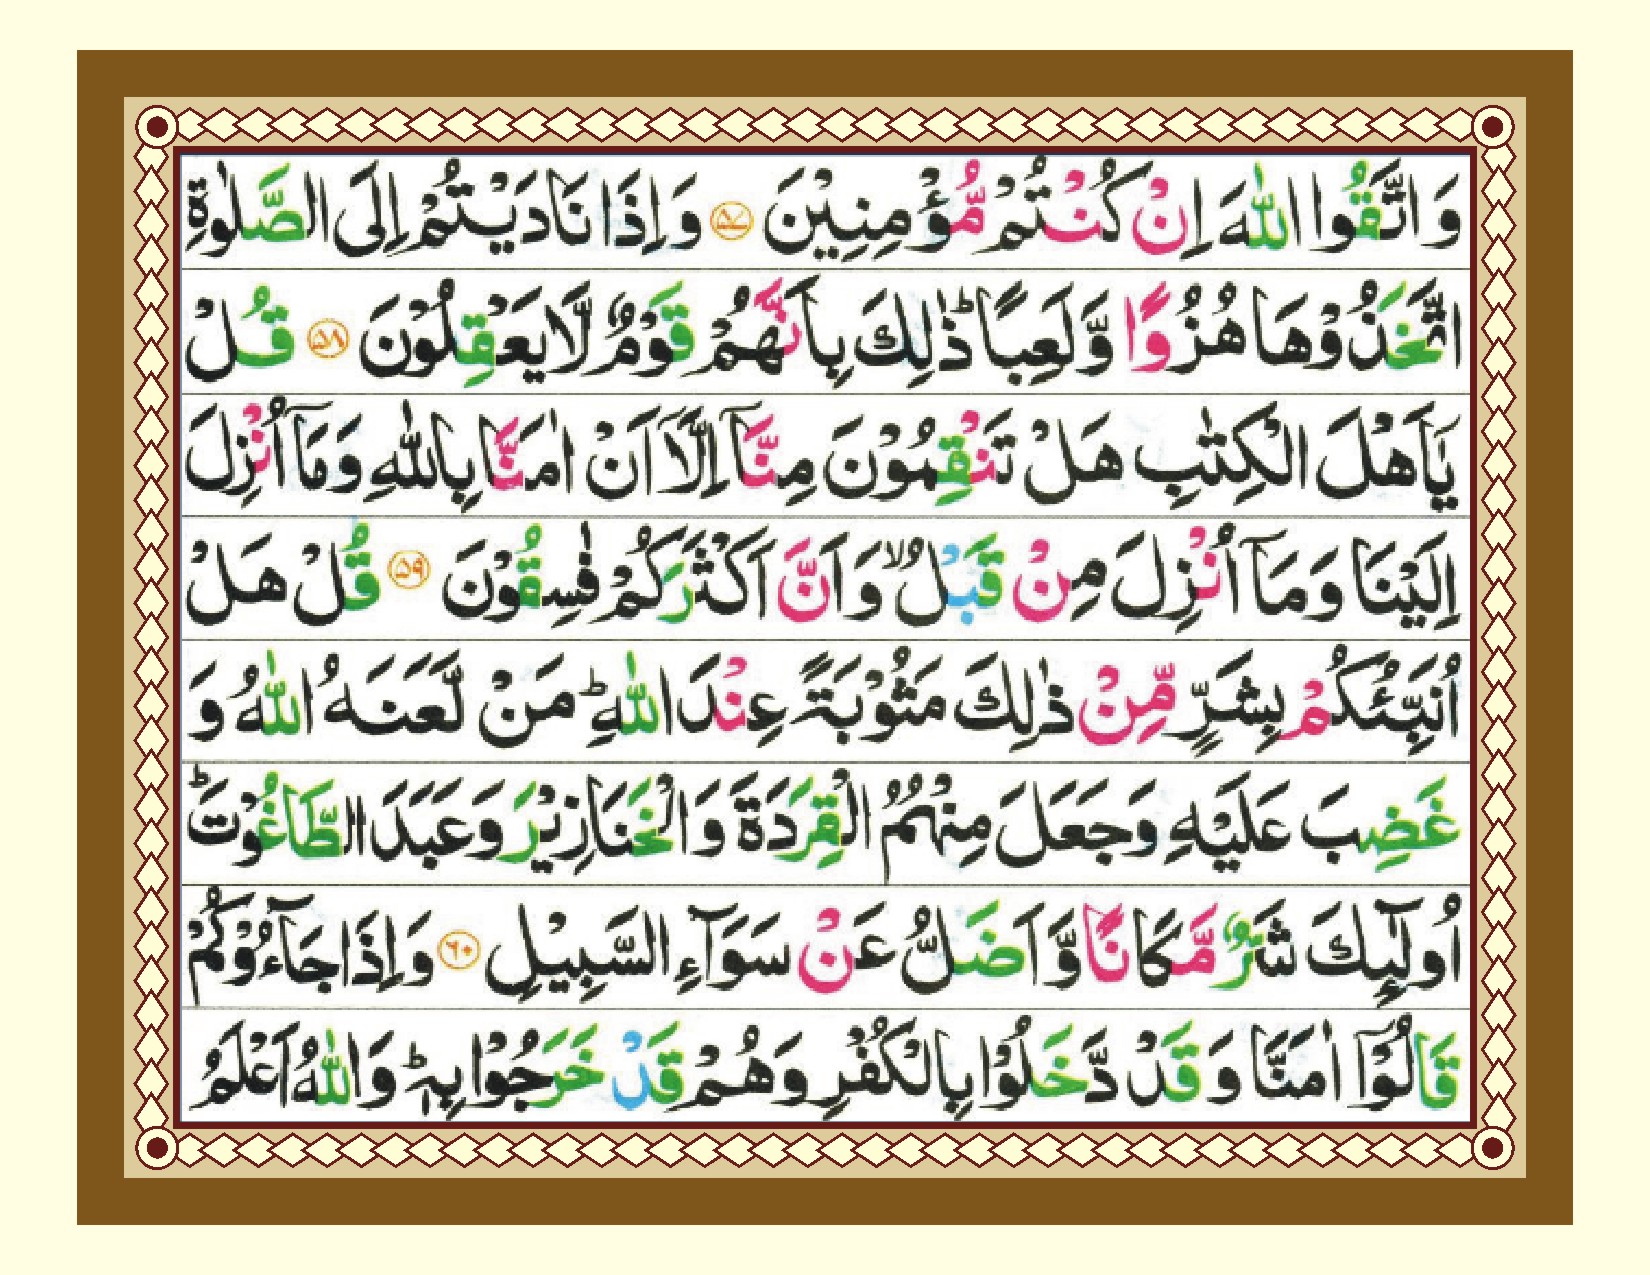 وَاتَّقُوا اللّٰهَ اِنْ كُنْتُمْ مُّؤْمِنِيْنَ ﴿۵۷﴾ وَاِذَا نَادَيْتُمْ اِلَى الصَّلٰوةِ
اتَّخَذُوْهَا هُزُوًا وَّلَعِبًا ؕ ذٰلِكَ بِاَنَّهُمْ قَوْمٌ لَّا يَعْقِلُوْنَ ﴿۵۸﴾ قُلْ
يٰۤاَهْلَ الْكِتٰبِ هَلْ تَنْقِمُوْنَ مِنَّاۤ اِلَّاۤ اَنْ اٰمَنَّا بِاللّٰهِ وَمَاۤ اُنْزِلَ
اِلَيْنَا وَمَاۤ اُنْزِلَ مِنْ قَبْلُ ۙ وَاَنَّ اَكْثَرَكُمْ فٰسِقُوْنَ ﴿۵۹﴾ قُلْ هَلْ
اُنَبِّئُكُمْ بِشَرٍّ مِّنْ ذٰلِكَ مَثُوْبَةً عِنْدَ اللّٰهِ ؕ مَنْ لَّعَنَهُ اللّٰهُ وَ
غَضِبَ عَلَيْهِ وَجَعَلَ مِنْهُمُ الْقِرَدَةَ وَالْخَنَازِيْرَ وَعَبَدَ الطَّاغُوْتَ ؕ
اُولٰٓئِكَ شَرٌّ مَّكَانًا وَّاَضَلُّ عَنْ سَوَآءِ السَّبِيْلِ ﴿۶۰﴾ وَاِذَا جَآءُوْكُمْ
قَالُوْۤا اٰمَنَّا وَقَدْ دَّخَلُوْا بِالْكُفْرِ وَهُمْ قَدْ خَرَجُوْا بِهٖ ؕ وَاللّٰهُ اَعْلَمُ